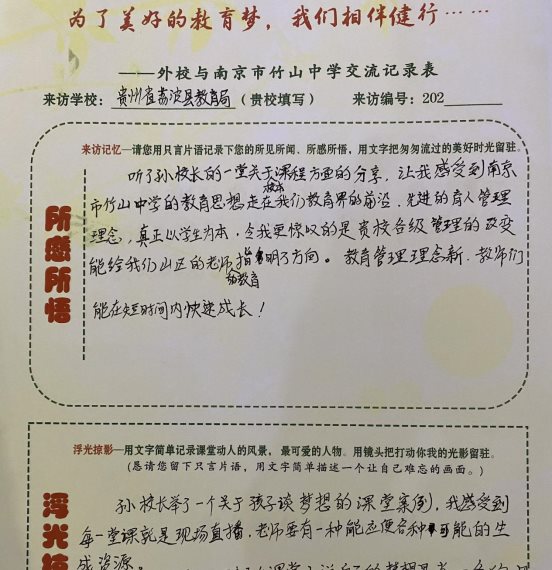 为了美好的教育梦，我们相伴健行……
——外校与南京市竹山中学交流记录表
来访学校：贵州省荔波县教育局（贵校填写） 来访编号：202
来访记忆—请您用只言片语记录下您的所见所闻、所感所悟，用文字把匆匆流过的美好时光留驻。
所感所悟
听了孙校长的一堂关于课程方面的分享，让我感受到南京
校本
市竹山中学的教育思想走在我们教育界的前沿，先进的育人管理
理念，真正以学生为本，令我更惊叹的是贵校各级管理的改变
能给我们山区的老师指明了方向。教育管理理念新，教师们
的教育
能在短时间内快速成长！
浮光掠影—用文字简单记录课堂动人的风景，最可爱的人物。用镜头把打动你我的光影留驻。
（恳请您留下只言片语，用文字简单描述一个让自己难忘的画面。）
浮光
孙校长举了一个关于孩子谈梦想的课堂案例，我感受到
每一堂课就是现场直播，老师要有一种能应便各种可能的生
成资源。